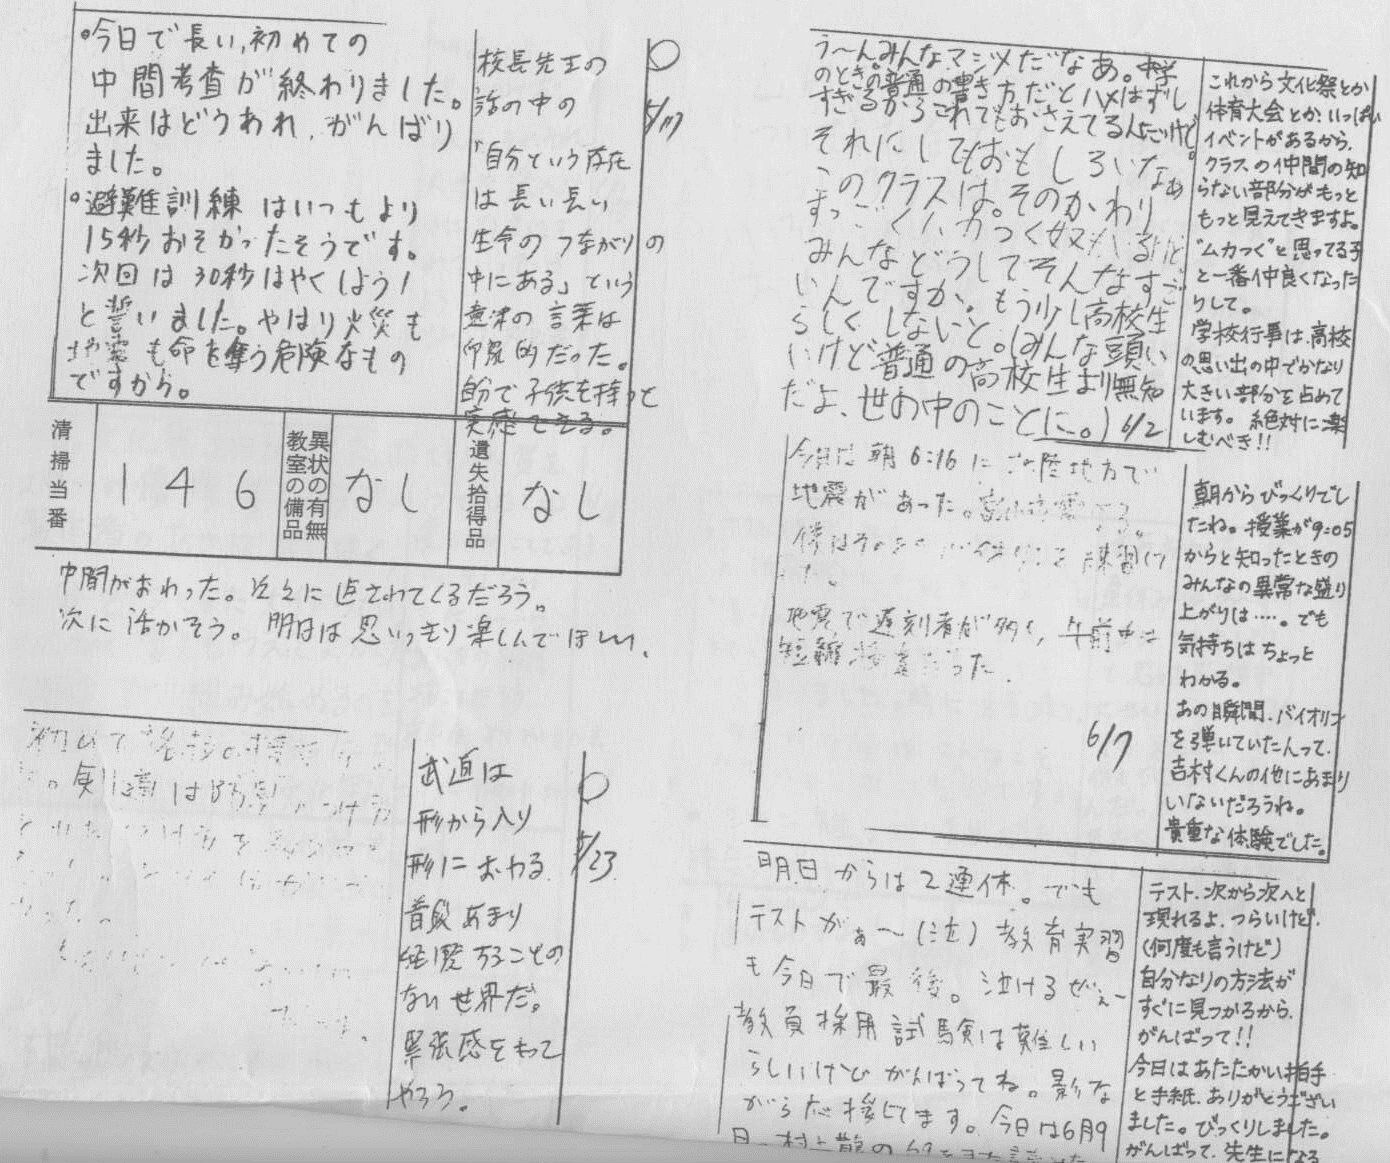 ・今日で長い、初めての
中間考査が終わりました。
出来はどうあれ、がんばり
ました。
・避難訓練はいつもより
15秒おそかったそうです。
次回は30秒はやくしよう!
と誓いました。やはり火災も
地震も命を奪う危険なもの
ですから。
校長先生の
話の中の
「自分という存在
は長い長い
生命のつながりの
中にある」という
意味の言葉は
印象的だった。
自分で子供を持つと
実感できる。
5/17
清掃当番
1 4 6
教室の備品
異状の有無
なし
遺失拾得品
なし
中間がおわった。次々に返されてくるだろう。
次に活かそう。明日は思いっきり楽しんでほしい。
初めて
武道は
形から入り
形におわる
普段あまり
経験することの
ない世界だ。
緊張感をもって
やろう。
5/23
う〜ん。みんなマジメだなあ。中学
のときの普通の書き方だとハメはずし
すぎるから これでもおさえてるんだけど。
それにしてもおもしろいなぁ
このクラスは。そのかわり
すっごくムカつく奴もいるけど
みんなどうしてそんなすご
いんですか。もう少し高校生
らしくしないと。(みんな頭い
いけど普通の高校生より無知
だよ、世の中のことに。) 6/2
これから文化祭とか
体育大会とか、いっぱい
イベントがあるから、
クラスの仲間の知
らない部分がもっと
もっと見えてきますよ。
"ムカつく"と思ってる子
と一番仲良くなった
りして。
学校行事は、高校
の思い出の中でかなり
大きい部分を占めて
います。絶対に楽
しむべき!!
今日は朝6:16に 陸地方で
地震があった。
僕はそのとき 練習して
いた。
地震で遅刻者が多く、午前中は
短縮授業だった。
6/7
朝からびっくりでし
たね。授業が9:05
からと知ったときの
みんなの異常な盛り
上がりは……。でも
気持ちはちょっと
わかる。
あの瞬間、バイオリン
を弾いていた人って、
吉村くんの他にあまり
いないだろうね。
貴重な体験でした。
明日からは2連休。でも
テストがぁ〜(泣)教育実習
も今日で最後。泣けるぜぇー
教員採用試験は難しい
らしいけどがんばってね。影な
がら応援してます。今日は6月9
テスト、次から次へと
現れるよ、つらいけど。
(何度も言うけど)
自分なりの方法が
すぐに見つかるから、
がんばって!!
今日はあたたかい拍手
と手紙、ありがとうござい
ました。びっくりしました。
がんばって、先生になる